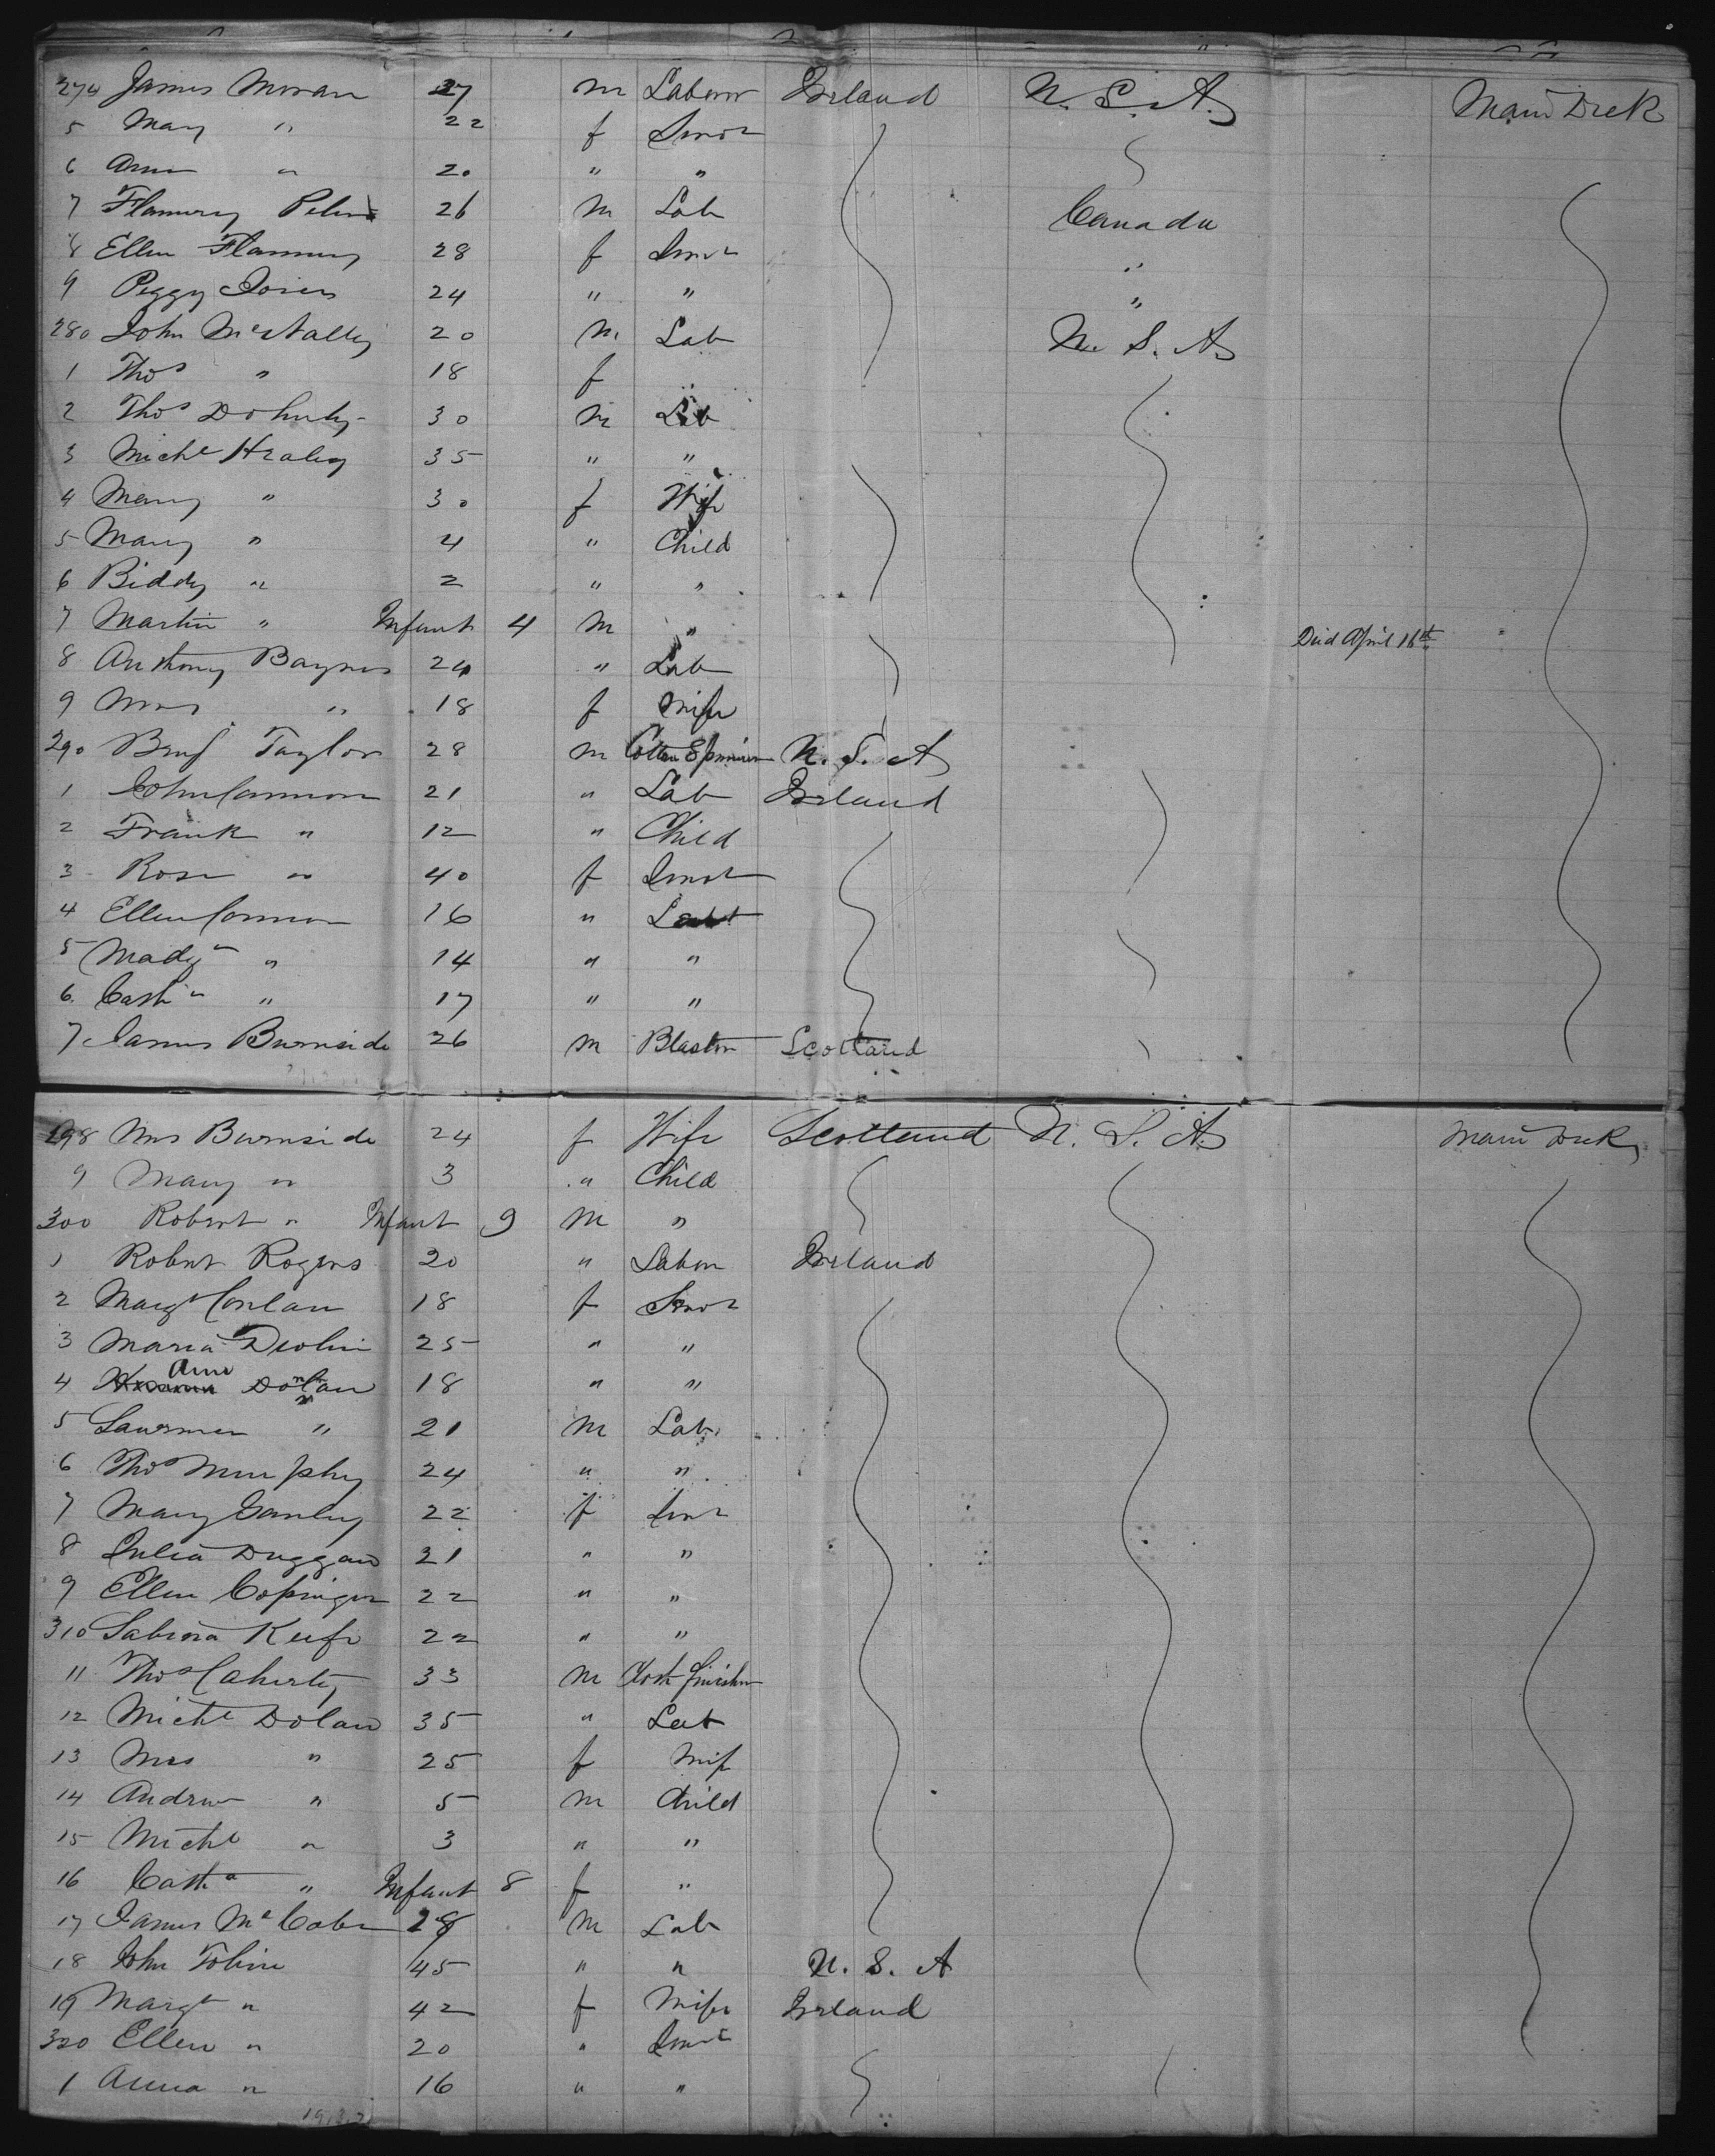 274 James Moran 27 m Laborer Ireland U.S.A. Main Deck
5 Mary " 22 f Servt
6 Ann " 20 " "
7 Flannery Peter 26 m Lab Canada
8 Ellen Flannery 28 f Servt "
9 Peggy 24 " " "
280 John McNally 20 m Lab U.S.A.
1 Thos " 18 f "
2 Thos Dohurty 30 m Lab
3 Michl Healey 35 " "
4 Mary " 30 f Wife
5 Mary " 4 " Child
6 Biddy " 2 " "
7 Martin " Infant 4 m " Died April 16th
8 Anthony Baynes 24 " Lab
9 Mrs " 18 f Wife
290 Benj Taylor 28 m Cotton Spinner U.S.A
1 John Cannon 21 " Lab Ireland
2 Frank " 12 " Child
3 Rose " 40 f Servt
4 Ellen Cannon 16 "
5 " 14 " "
6 Cathn " 17 " "
7 James Burnside 26 m Scotland
298 Mrs Burnside 24 f Wife Scotland U.S.A. Main Deck
9 Mary " 3 " Child
300 Robert " Infant 9 m "
1 Robert Rogers 20 " Labor Ireland
2 Margt Conlan 18 f Servt
3 Maria Devlin 25 " "
4 Ann 18 " "
5 Lawrence " 21 m Lab
6 Thos Murphy 24 " "
7 Mary Ganley 22 f Servt
8 Julia Duggan 21 " "
9 Ellen Copinger 22 " "
310 Sabina Keefe 22 " "
11 Thos Caherty 33 m Cloth finisher
12 Michl Dolan 35 " Lab
13 Mrs " 25 f Wife
14 Andrew " 5 m Child
15 Michl " 3 " "
16 Cathn " Infant 8 f "
17 James McCabe 28 m Lab
18 John Tobin 45 " " U.S.A
19 Margt " 42 f Wife Ireland
320 Ellen " 20 " Servt
1 Anna " 16 " "